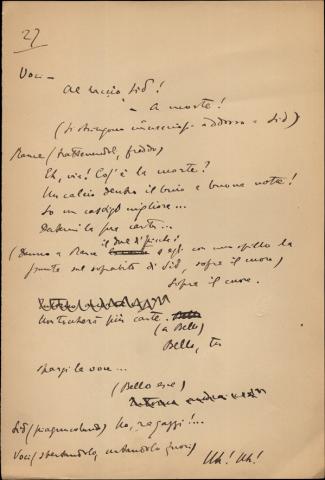 27
Voci —
Al laccio Sid!
— A morte!
(Si stringono minacciosi addosso a Sid)
Rance (trattenendoli, freddo)
Eh, via! Cos' è la morte?
Un calcio dentro il buio e buona notte!
So un castigo migliore...
Datemi la sua carta...
il due di picche!
(Danno a Rance con uno spillo la
punta sul soprabito di Sid, sopra il cuore)
Sopra il cuore.
Non toccherà più carte.
(a Bello)
Bello, tu
spargi la voce...
(Bello esce)
Sid (piagnucolando) No, ragazzi!...
Voci (sbertandolo, cacciandolo fuori)
Uh! Uh!